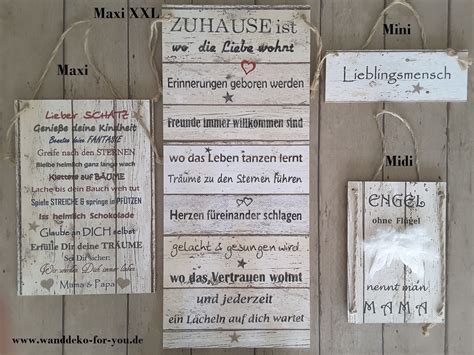 Maxi XXL
Maxi
Mini
Midi
Lieber SCHATZ
Genieße deine Kindheit
Benutze deine FANTASIE
Greife nach den STERNEN
Bleibe heimlich ganz lange wach
Klettere auf BÄUME
Lache bis dein Bauch weh tut
Spiele STREICHE & springe in PFÜTZEN
Iss heimlich Schokolade
Glaube an DICH selbst
Erfülle Dir deine TRÄUME
Sei Du selbst
Wir werden Dich immer lieben
Mama & Papa
ZUHAUSE ist
wo die Liebe wohnt
Erinnerungen geboren werden
Freunde immer willkommen sind
wo das Leben tanzen lernt
Träume zu den Sternen führen
Herzen füreinander schlagen
gelacht & gesungen wird
wo das Vertrauen wohnt
und jederzeit
ein Lächeln auf dich wartet
Lieblingsmensch
ENGEL
ohne Flügel
nennt man
MAMA
www.wanddeko-for-you.de